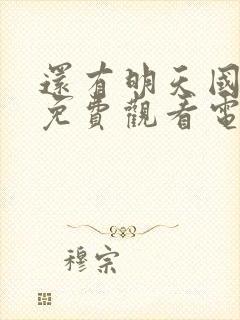 還有明天國
免費觀看電
穆宗